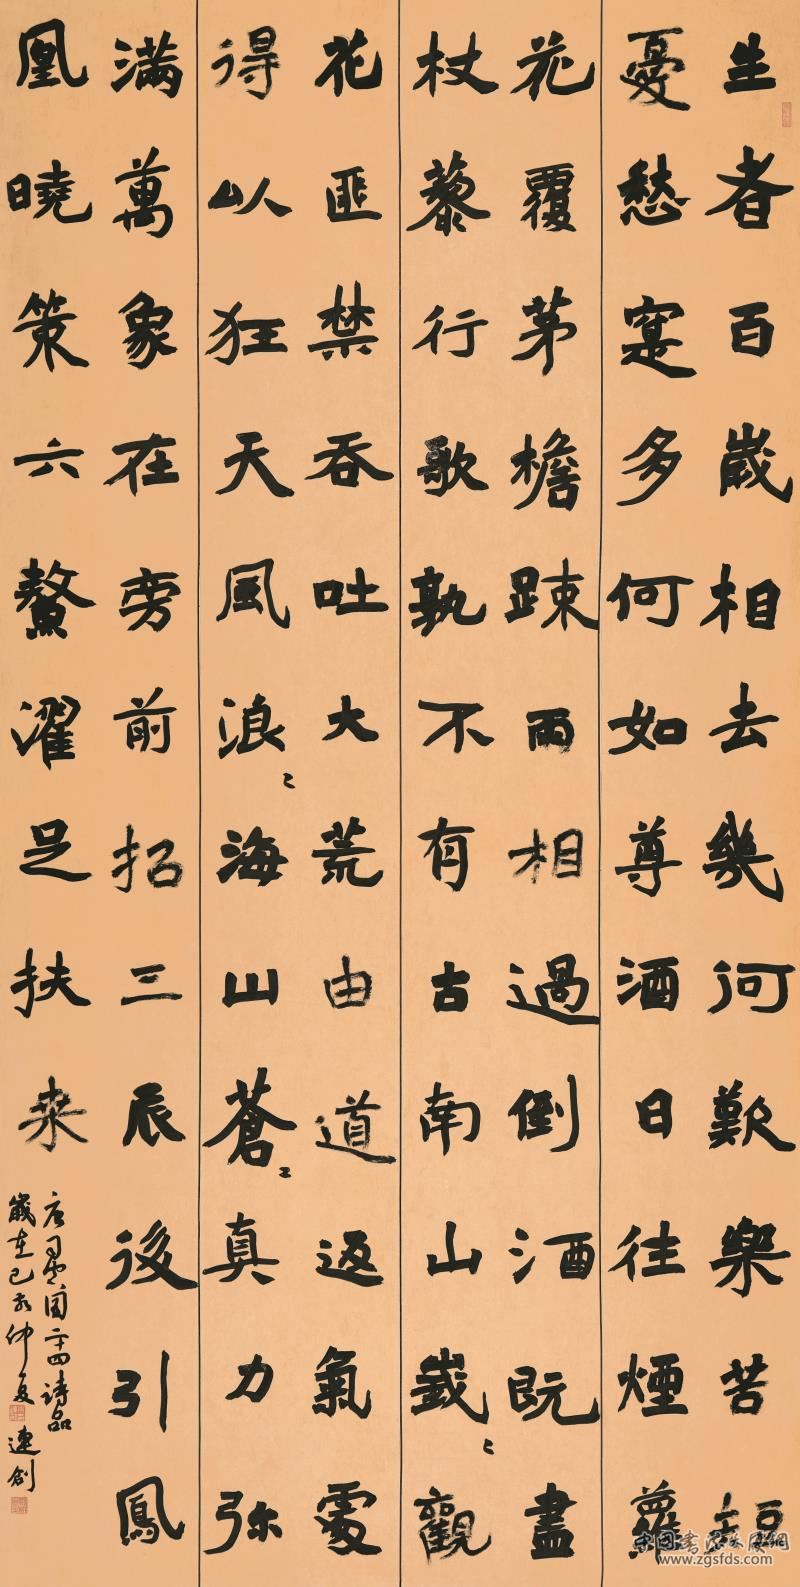 生者百歲相去幾何歡樂苦短
憂愁寔多何如尊酒日往煙蘿
花覆茅檐疎雨相過倒酒既盡
杖藜行歌孰不有古南山峩〻觀
花匪禁吞吐大荒由道返氣處
得以狂天風浪〻海山蒼〻真力弥
滿萬象在旁前招三辰後引鳳
凰曉策六鰲濯足扶来
唐司空图二十四诗品
歲在己亥仲夏連創
www.zgsfds.com